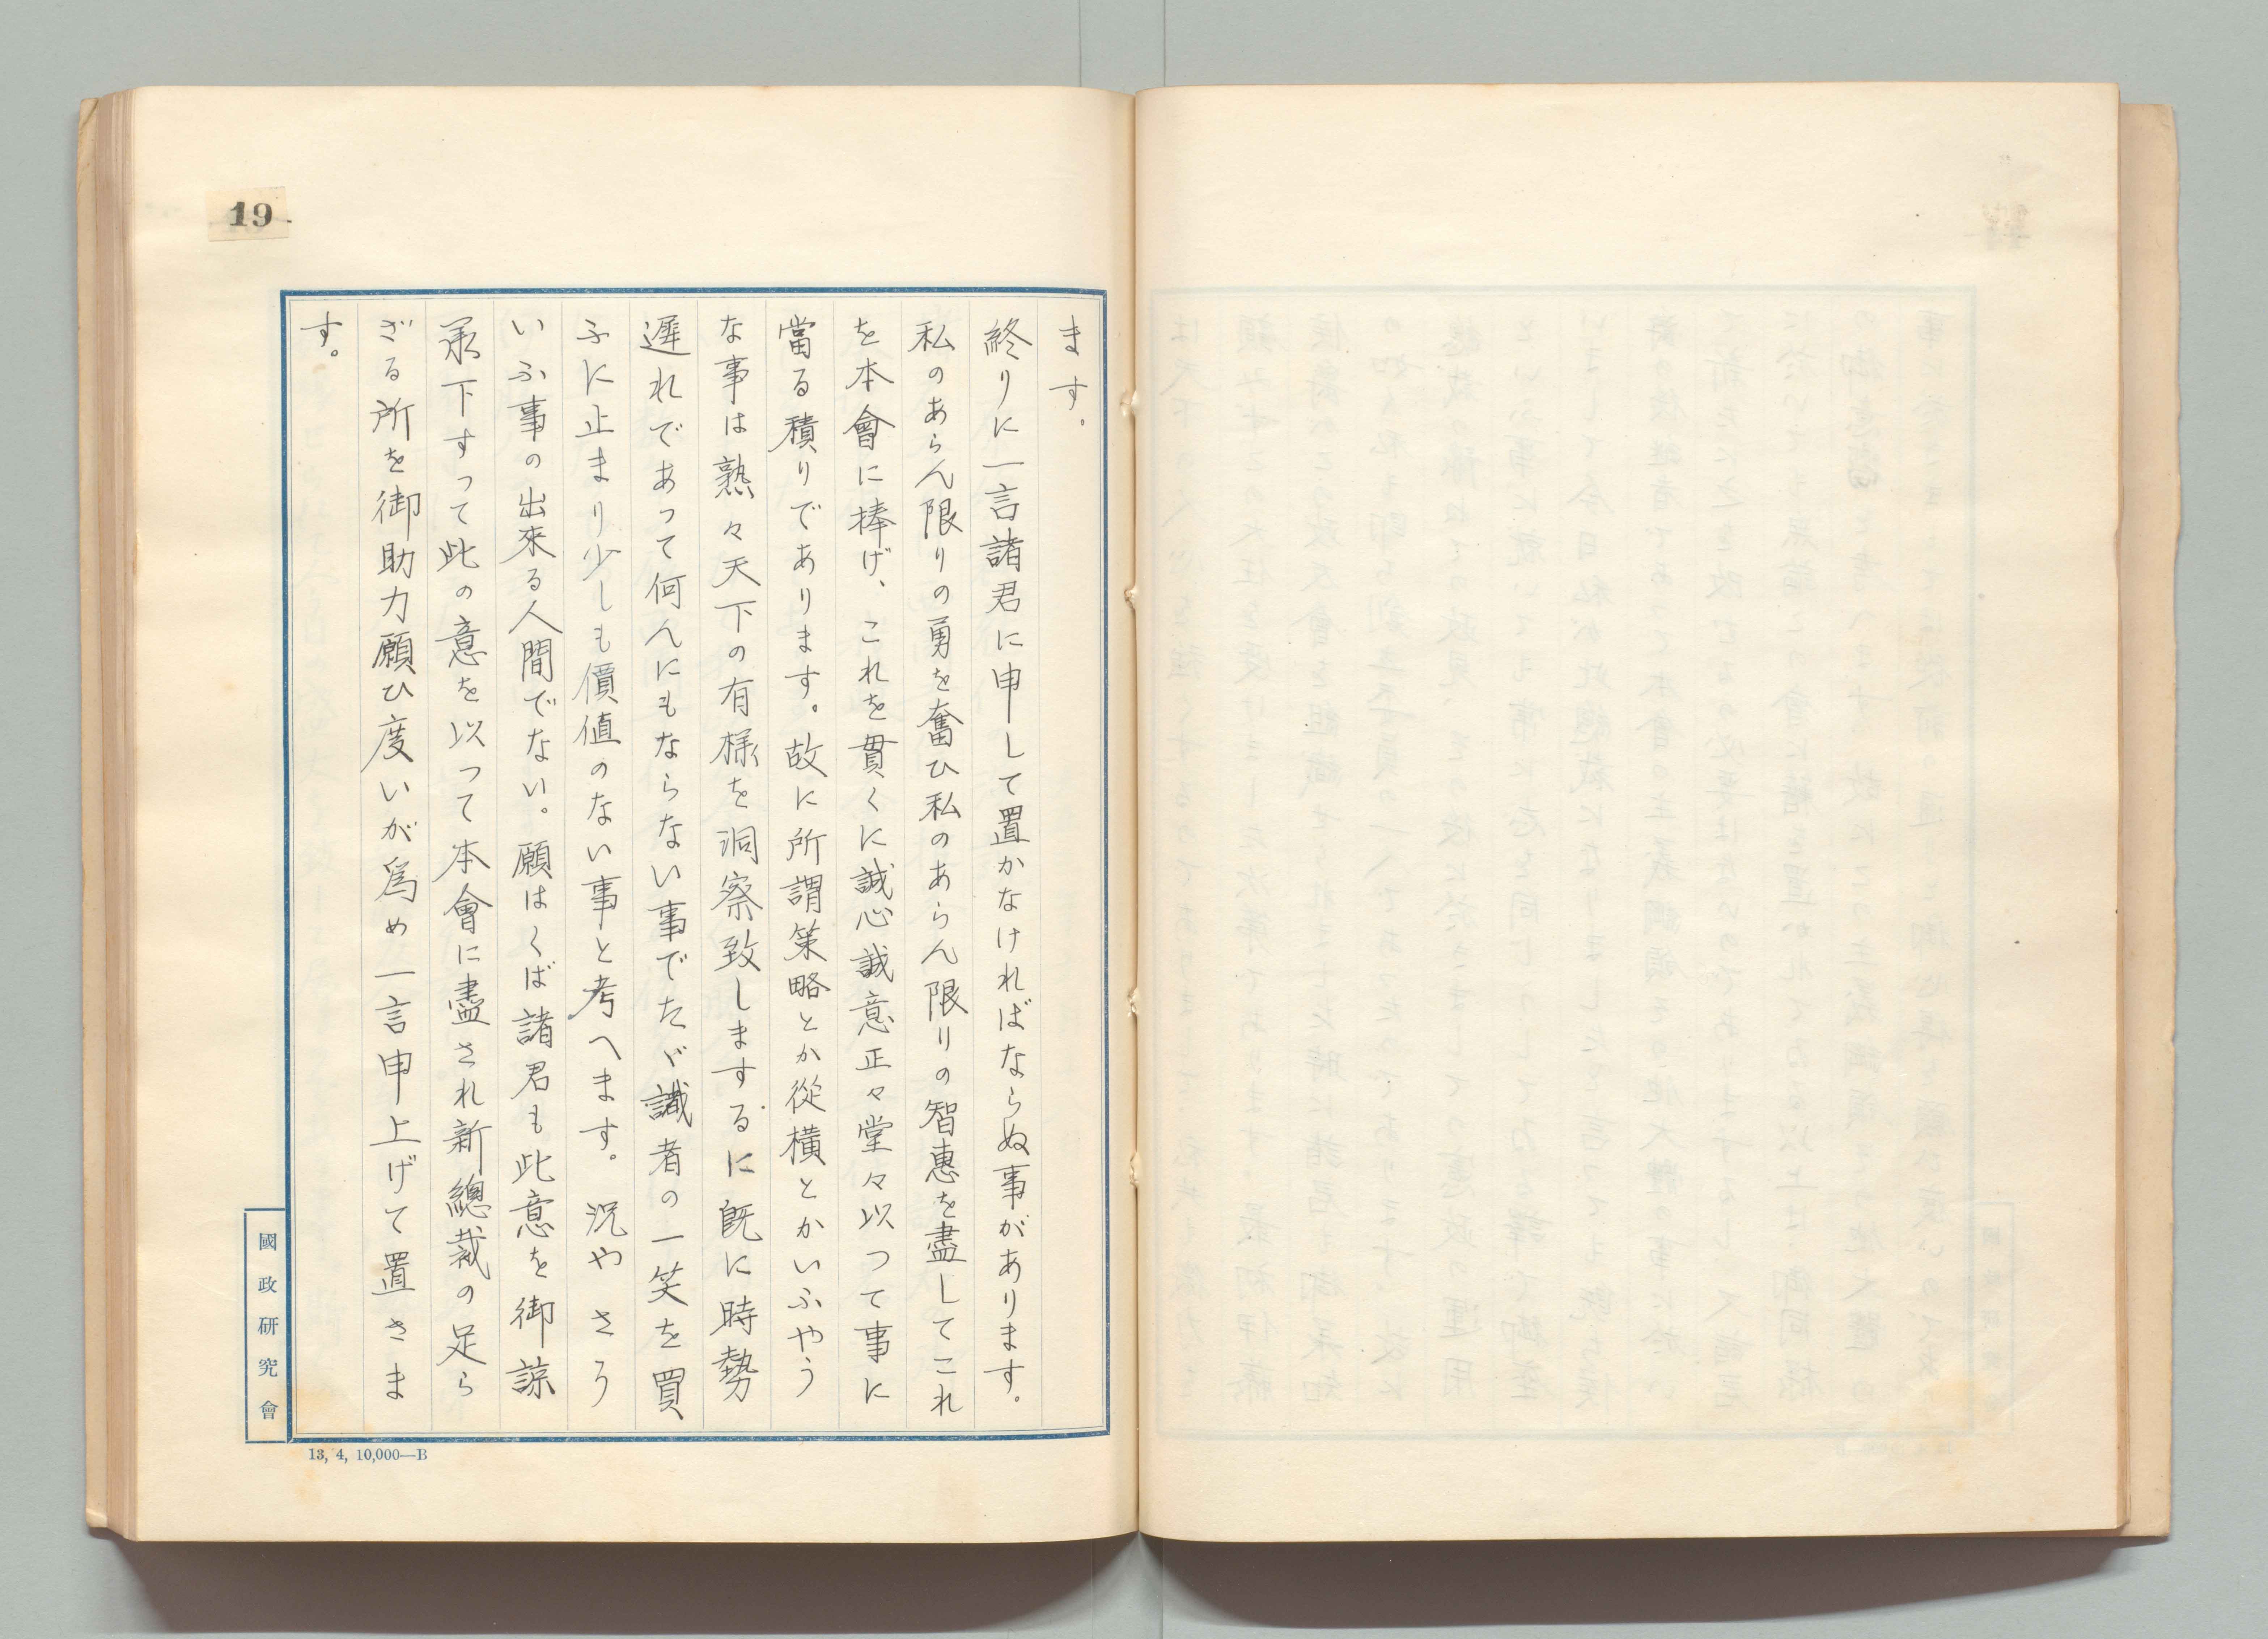 19
ます。
終りに一言諸君に申して置かなければならぬ事があります。
私のあらん限りの勇を奮ひ私のあらん限りの智惠を盡してこれ
を本會に捧げ、これを貫くに誠心誠意正々堂々以つて事に
當る積りであります。故に所謂策略とか從橫とかいふやう
な事は熟々天下の有樣を洞察致しまするに既に時勢
遲れであつて何んにもならない事でたゞ識者の一笑を買
ふに止まり少しも價値のない事と考へます。況やさう
いふ事の出來る人間でない。願はくば諸君も此意を御諒
承下すつて此の意を以つて本會に盡され新總裁の足ら
ざる所を御助力願ひ度いが爲め一言申上げて置きま
す。
國政研究會
13, 4, 10,000—B